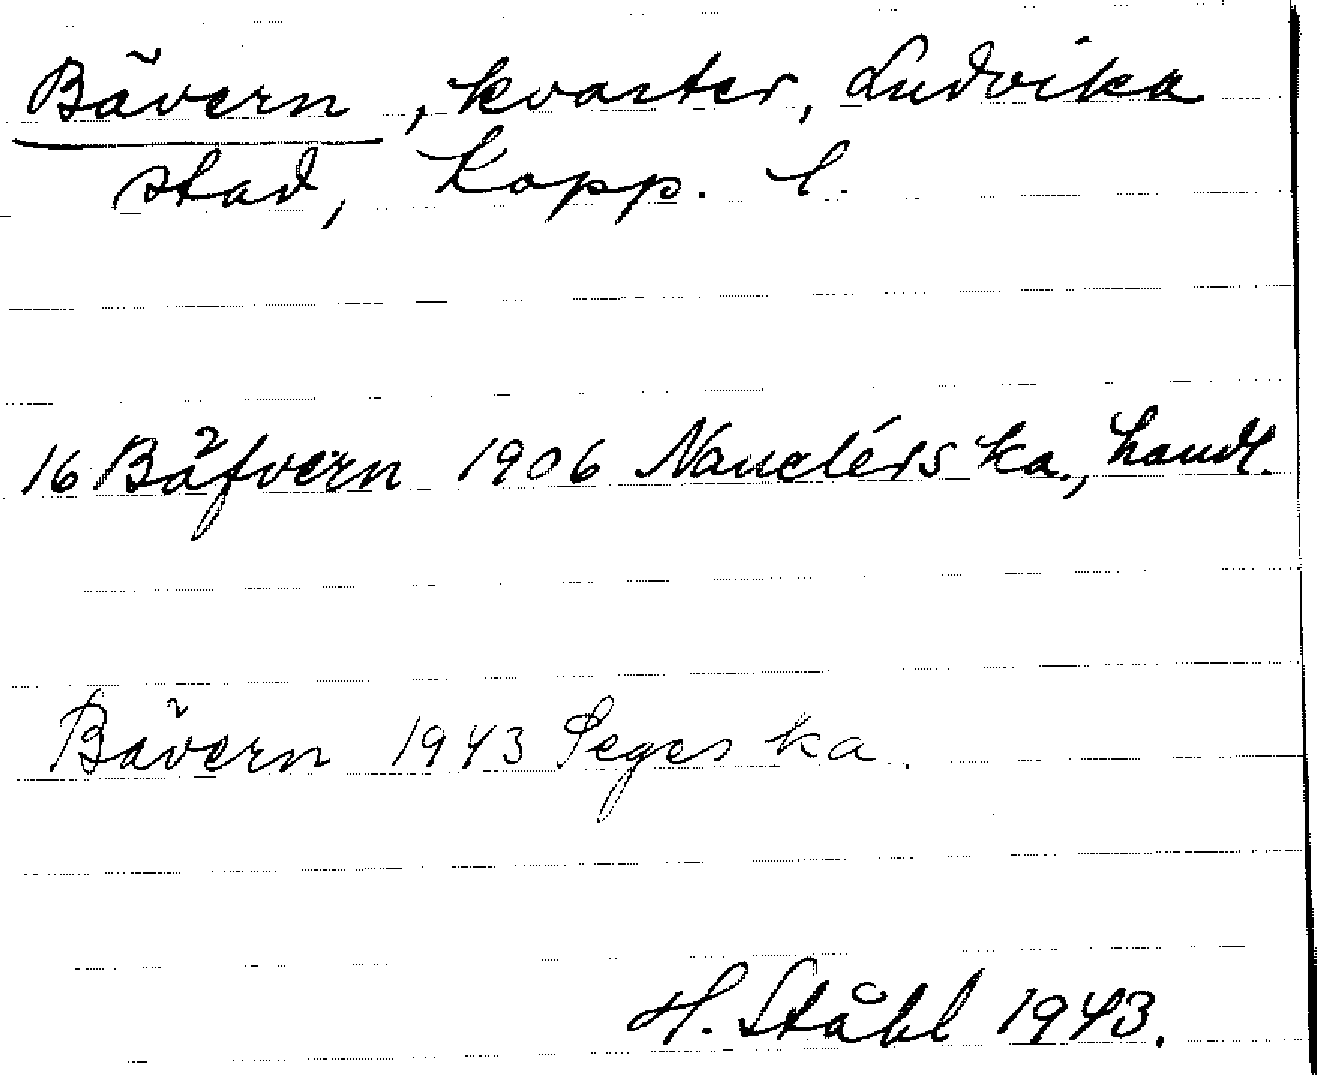 Bävern, kvarter, Ludvika
stad, Kopp. l.
16 Bäfvern 1906 Nauclérs ka., handl.
Bävern 1943 Seges ka.
H. Ståhl 1943.